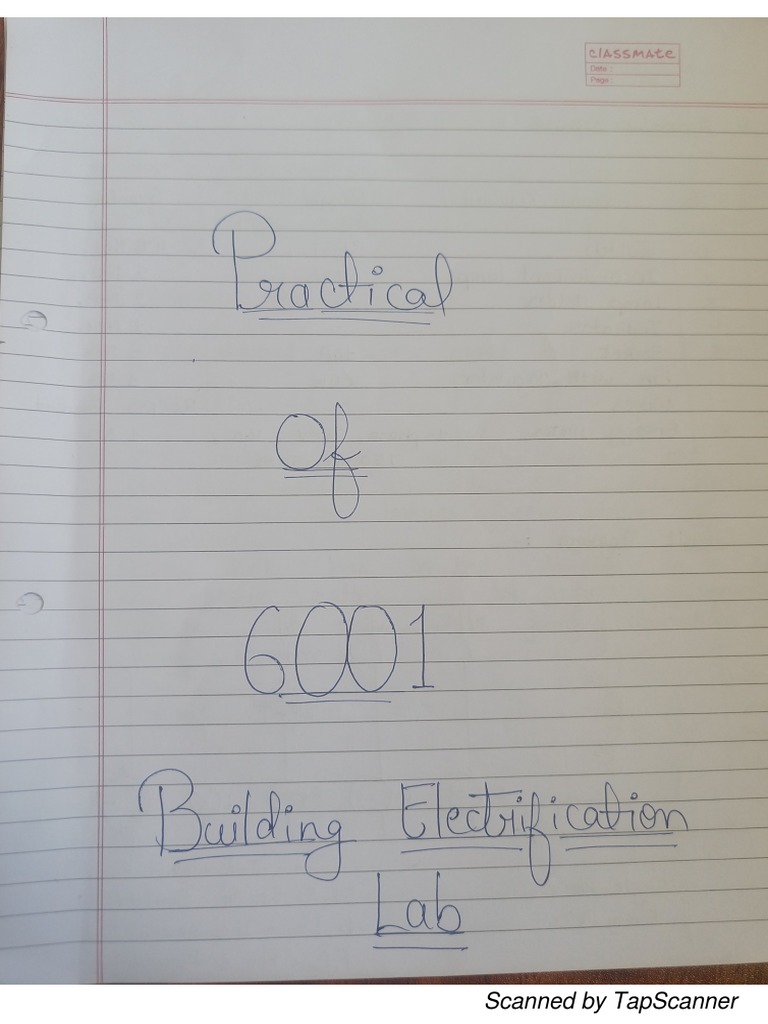 classmate
Date :
Page :
Practical
Of
6001
Building Electrification
Lab
Scanned by TapScanner